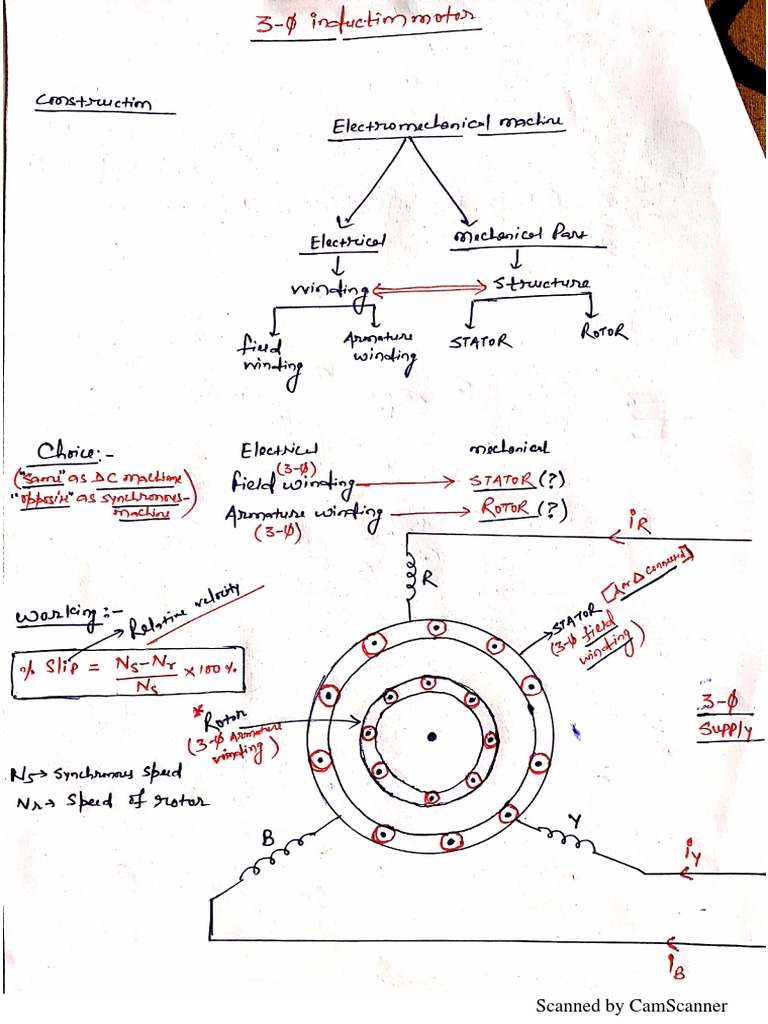 3-φ induction motor
Construction
Electromechanical machine
Electrical
Mechanical Part
winding
Structure
field winding
Armature winding
STATOR
ROTOR
Choice:-
("Same" as DC machine
"opposite" as synchronous-
machine)
Electrical
mechanical
(3-φ)
field winding
STATOR (?)
Armature winding
ROTOR (?)
(3-φ)
iR
R
[λ or Δ connected]
STATOR
(3-φ field
winding)
Working:-
Relative velocity
% Slip = Ns-Nr/Ns × 100%
*Rotor
(3-φ Armature
winding)
3-φ
Supply
Ns → Synchronous Speed
Nr → Speed of rotor
B
Y
iY
iB
Scanned by CamScanner